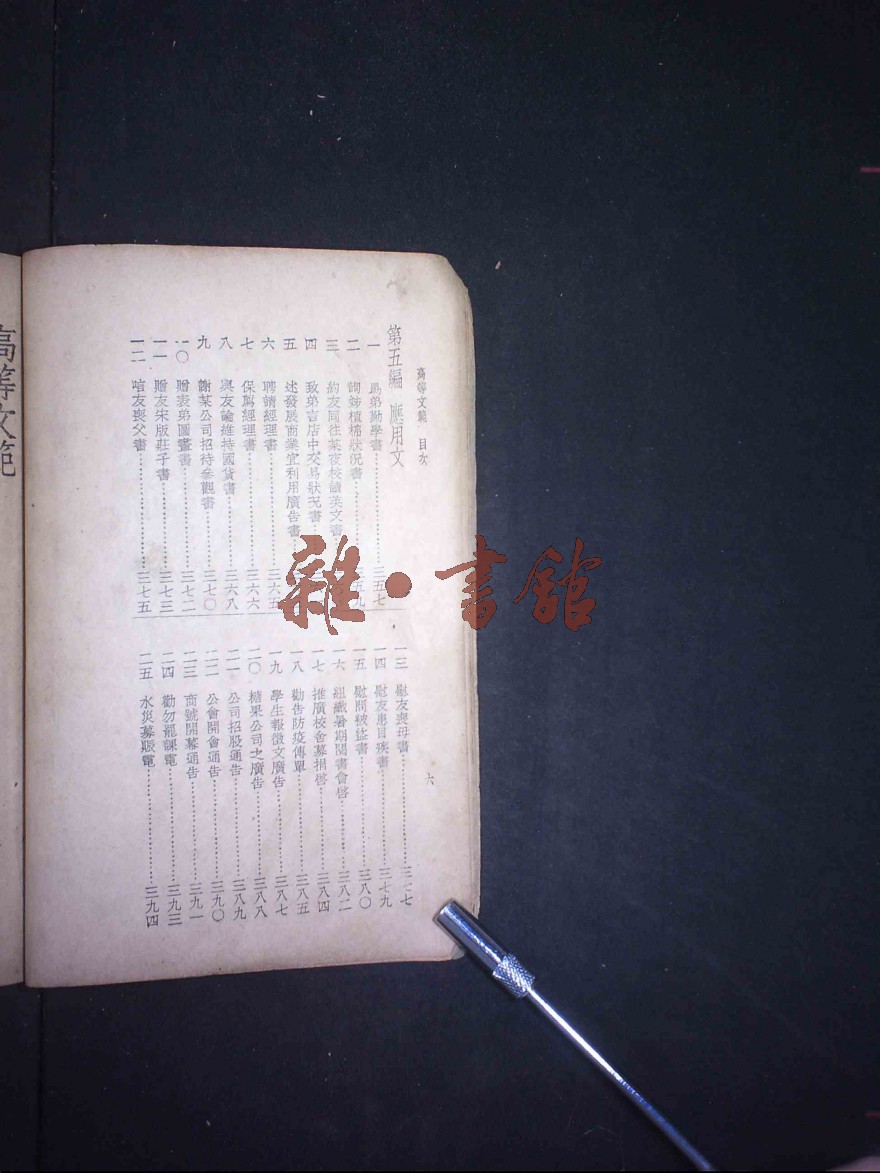 高等文範 目次
第五編 應用文
一 爲弟勸學書……三五七
二 詢姊積棉狀況書……五九
三 約友同往某夜校讀英文書
四 致弟言店中交易狀況書
五 述發展商業宜利用廣告書
六 聘請經理書……三六五
七 保薦經理書……三六六
八 與友論維持國貨書……三六八
九 謝某公司招待參觀書……三七〇
一〇 贈表弟圖畫書……三七二
一一 贈友宋版莊子書……三七三
一二 唁友喪父書……三七五
一三 慰友喪母書……三七七
一四 慰友患目疾書……三七九
一五 慰問被盜書……三八〇
一六 組織暑期閱書會啓……三八二
一七 推廣校舍募捐啓……三八四
一八 勸告防疫傳單……三八五
一九 學生報徵文廣告……三八七
二〇 糖果公司之廣告……三八八
二一 公司招股通告……三八九
二二 公會開會通告……三九〇
二三 商號開幕通告……三九一
二四 勸勿罷課電……三九三
二五 水災募賑電……三九四
六
高等文範
雜·書館